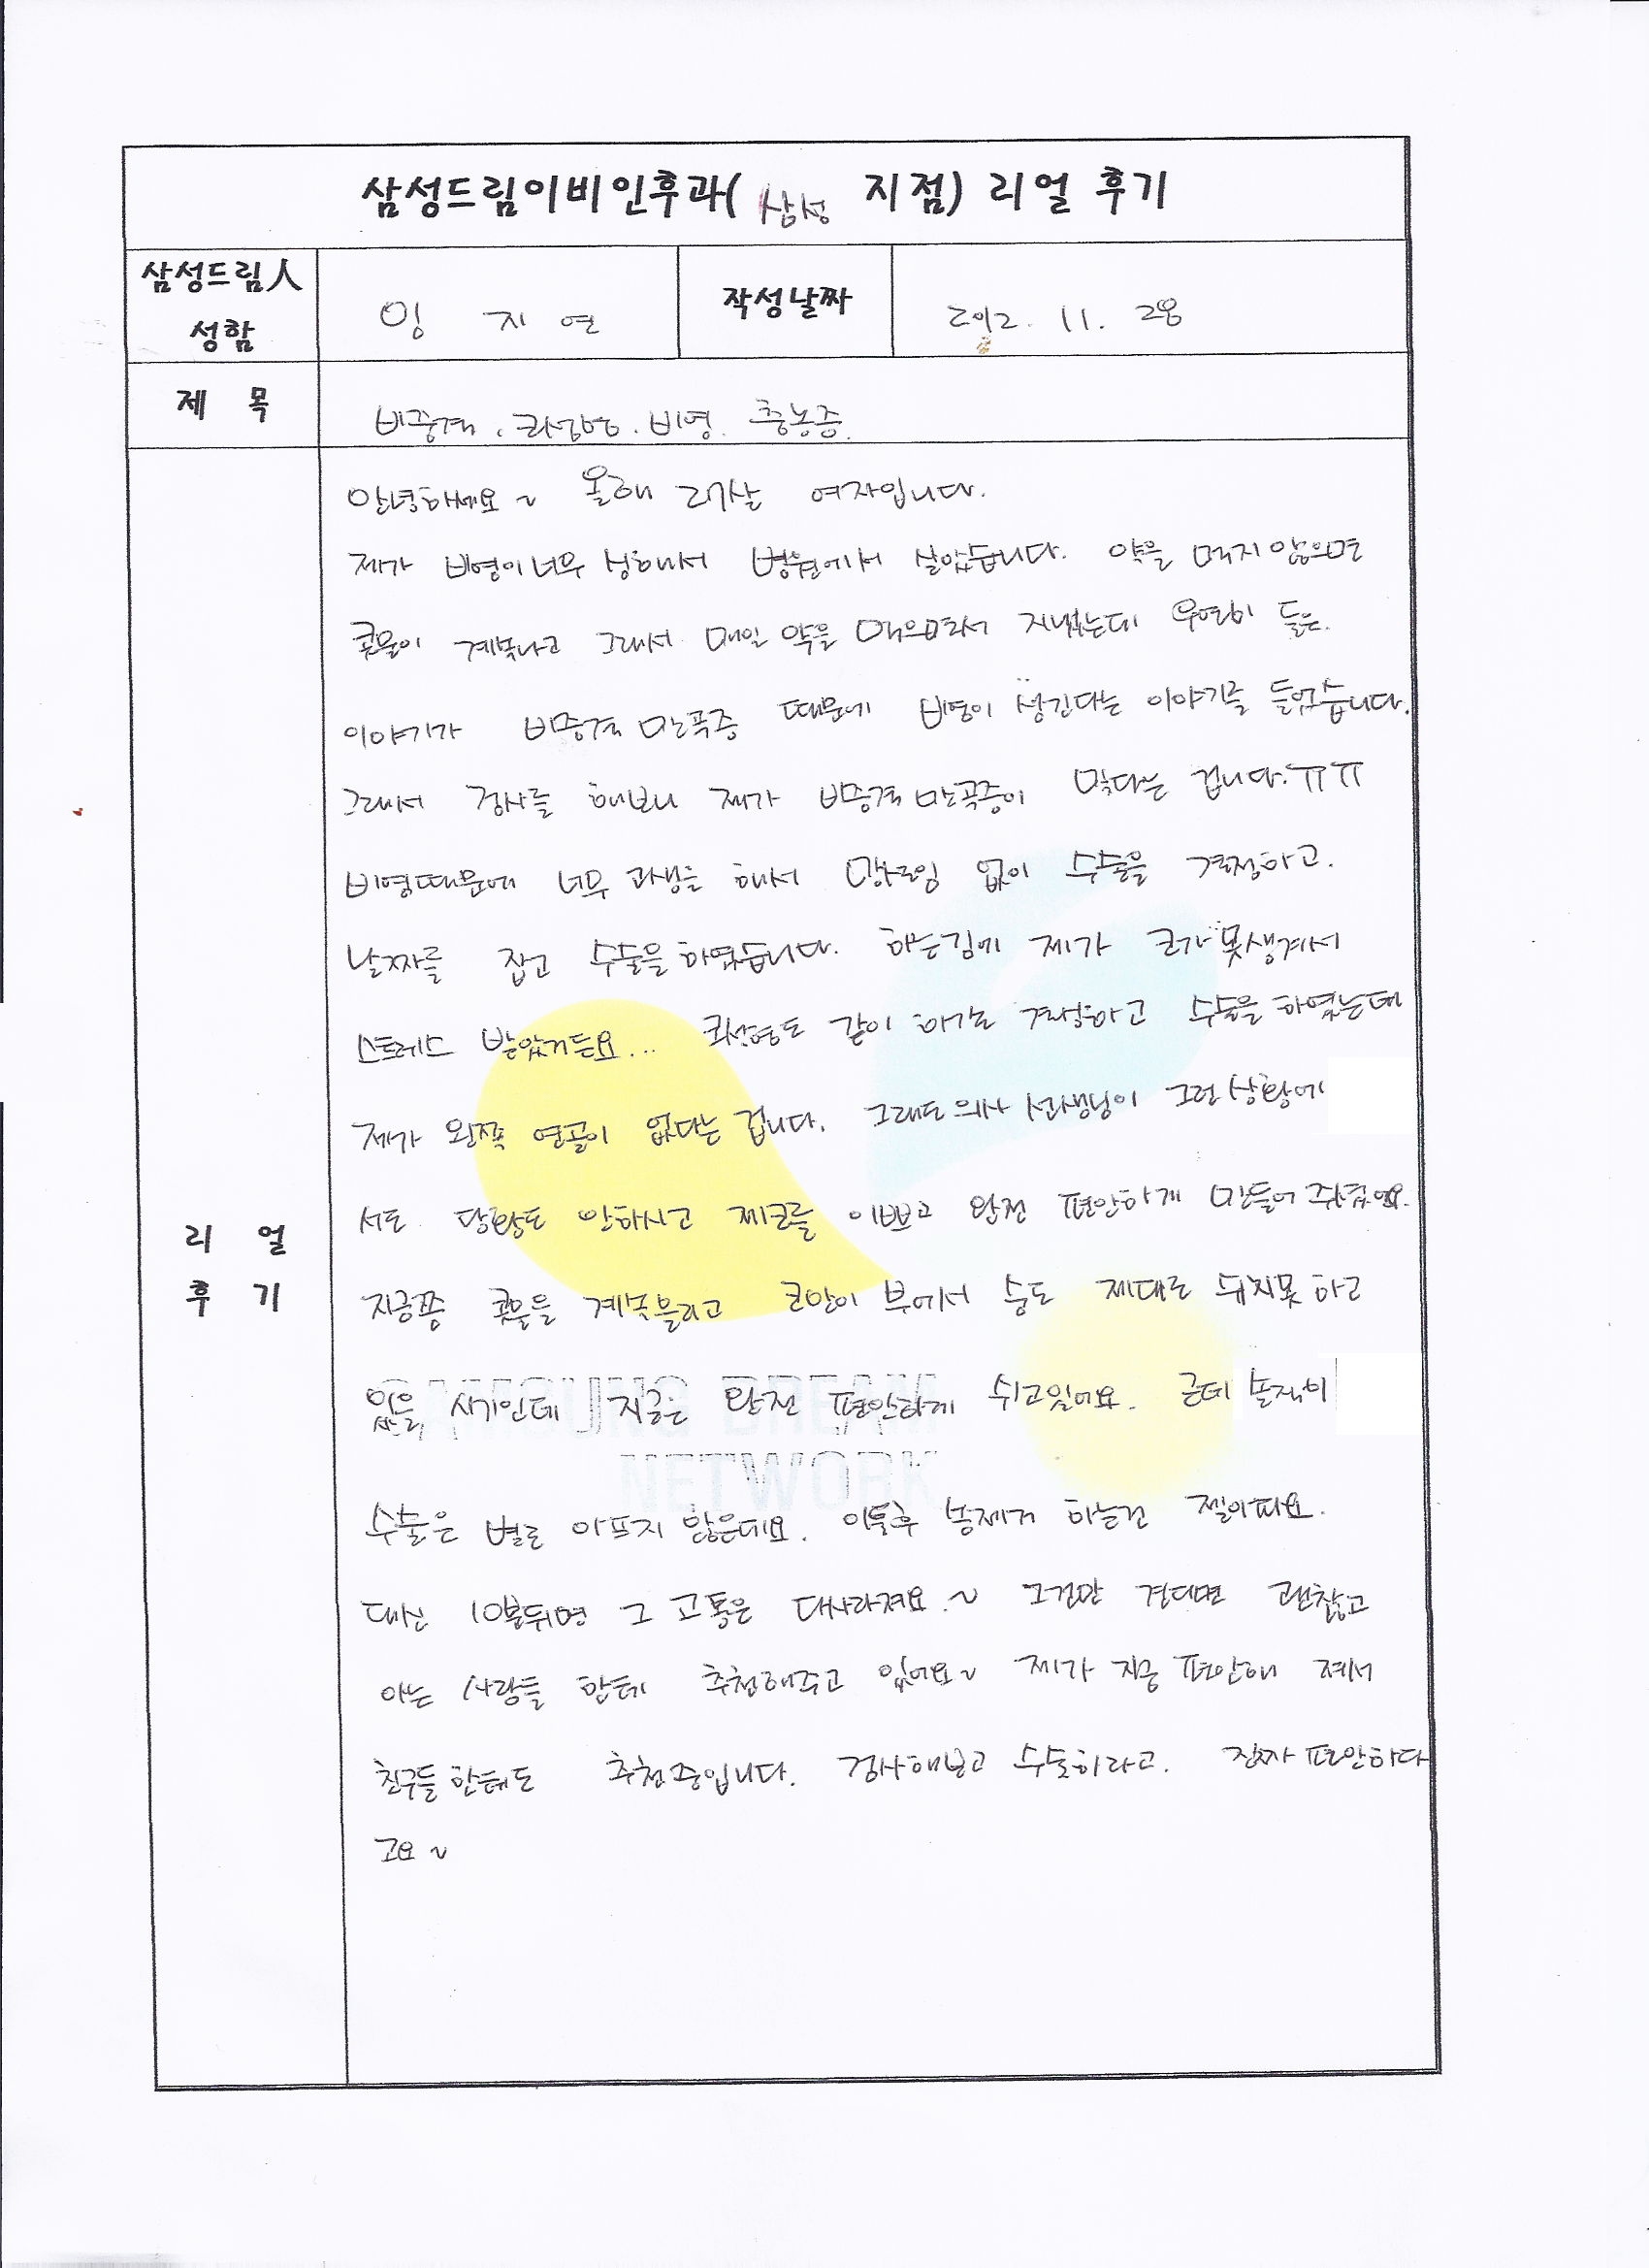 삼성드림이비인후과( 삼성 지점) 리얼 후기
삼성드림人
성함
임 지 연
작성날짜
2012. 11. 28
제 목
비중격. 코성형. 비염. 축농증.
안녕하세요~ 올해 27살 여자입니다.
제가 비염이 너무 심해서 병원에서 살았습니다. 약을 먹지 않으면
콧물이 계속나고 그래서 매일 약을 먹으면서 지냈는데 우연히 들은
이야기가 비중격 만곡증 때문에 비염이 생긴다는 이야기를 들었습니다.
그래서 검사를 해보니 제가 비중격 만곡증이 맞다는 겁니다.ㅠㅠ
비염때문에 너무 고생을 해서 망설임 없이 수술을 결정하고.
날짜를 잡고 수술을 하였습니다. 하는김에 제가 코가 못생겨서
스트레스 받았거든요... 코성형도 같이 하기로 결정하고 수술을 하였는데
제가 왼쪽 연골이 없다는 겁니다. 그래도 의사 선생님이 그런 상황에
서도 당황도 안하시고 제코를 이쁘고 완전 편안하게 만들어 주셨어요.
지금쯤 콧물을 계속 흘리고 코안이 부어서 숨도 제대로 쉬지못 하고
있을 시기인데 지금은 완전 편안하게 쉬고있어요. 근데 솔직히
SAMSUNG DREAM
NETWORK
수술은 별로 아프지 않은데요. 이틀후 솜제거 하는건 젤아파요.
대신 10분뒤면 그 고통은 다사라져요.~ 그것만 견디면 괜찮고
아는 사람들 한테 추천해주고 있어요~ 제가 지금 편안해 져서
친구들 한테도 추천중입니다. 검사해보고 수술하라고. 진짜 편안하다
고요~
리 얼
후 기